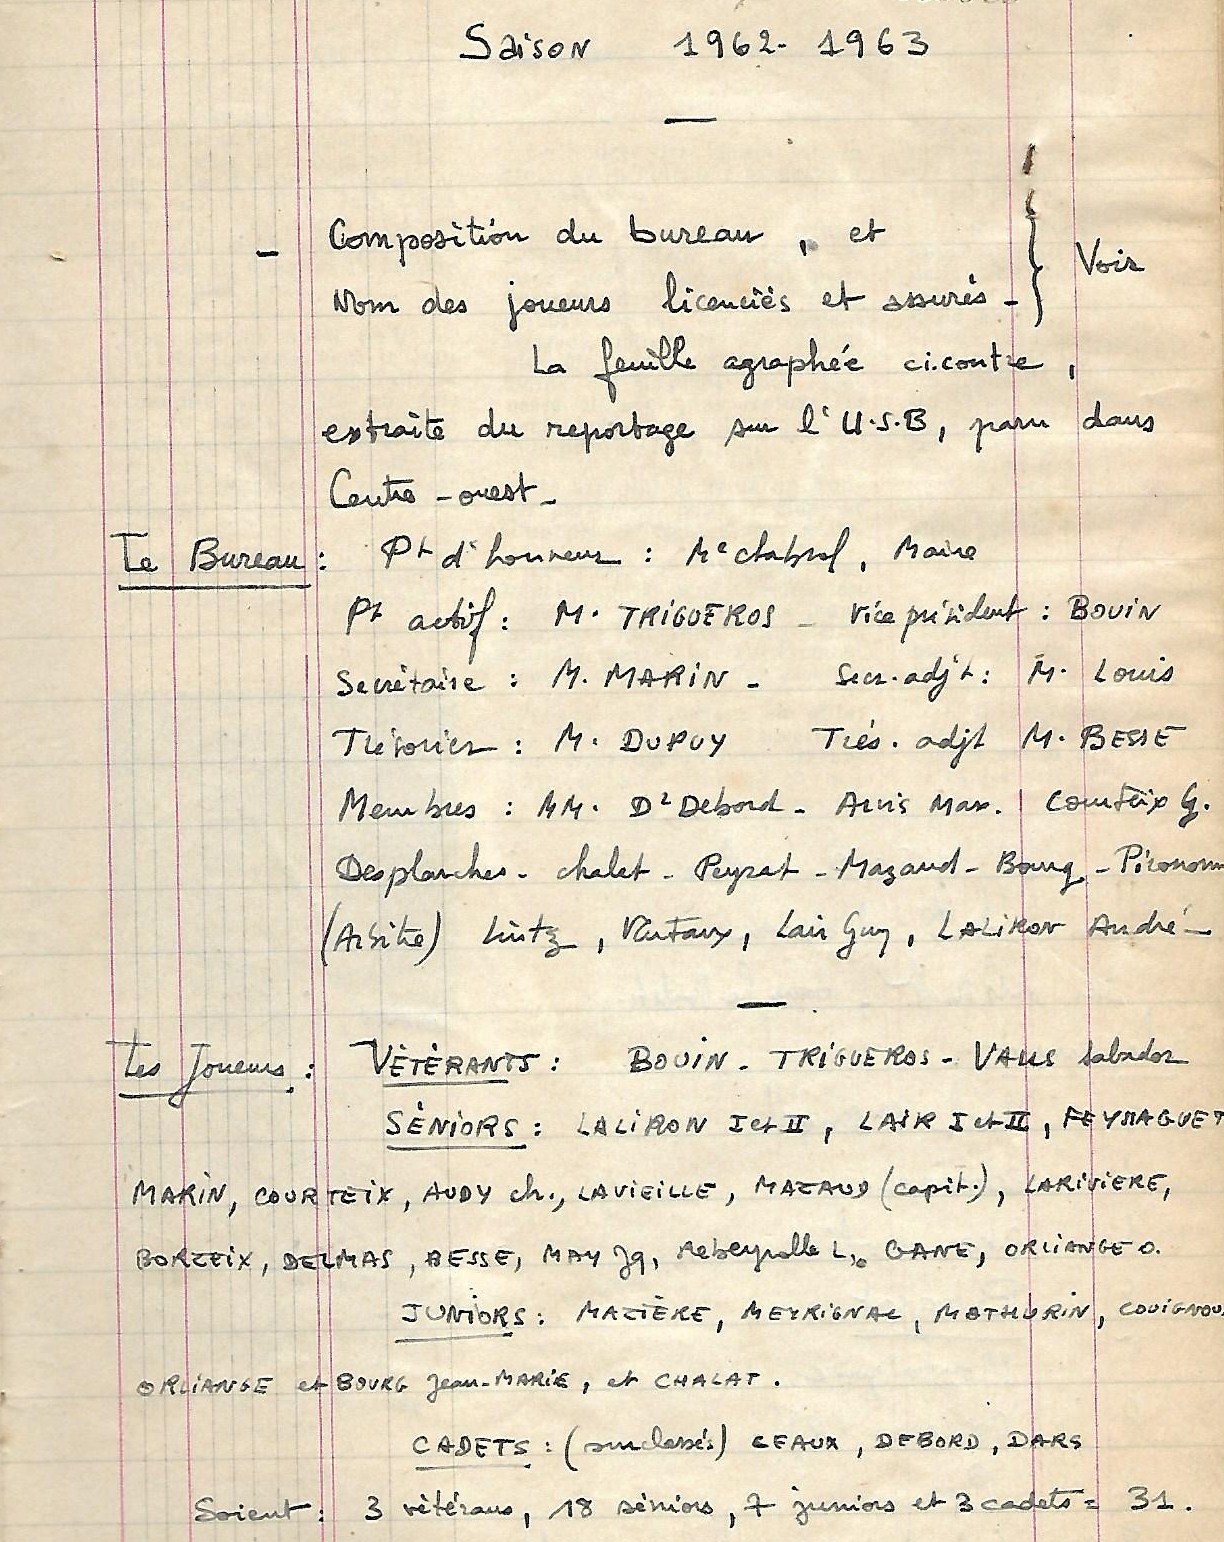 Saison 1962-1963
- Composition du bureau, et
Nom des joueurs licenciés et assurés - } Voir
La feuille agraphée ci.contre,
extraite du reportage sur l'U.S.B, paru dans
Centre-ouest-
Le Bureau : Pt d'honneur : Me chabrol, Maire
Pt actif : M. TRIGUEROS - Vice président : BOUIN
Secrétaire : M. MARIN - Secr. adjt : M. Louis
Trésorier : M. DUPUY Trés. adjt M. BESSE
Membres : MM. Dr Debord - Arvis Max. Courteix G.
Desplanches - chalet - Peyrat - Mazaud - Bourg -
(Arbitre) Lintz, Vautaux, Lair Guy, LALIRON André -
Les Joueurs : VÉTÉRANTS : BOUIN - TRIGUEROS - VALLS Salvador
SÉNIORS : LALIRON I et II, LAIR I et II, FEYMAGUET
MARIN, COURTEIX, AUDY ch., LAVIEILLE, MAZAUD (capit.), LARIVIERE,
BORZEIX, DELMAS, BESSE, MAY Jq, Rebeyrolle L, GANE, ORLIANGE O.
JUNIORS : MAZIÈRE, MEYRIGNAC, MATHURIN, COUIGNOU
ORLIANGE et BOURG Jean-MARIE, et CHALAT.
CADETS : (surclassés) CEAUX, DEBORD, DARS
Soient : 3 vétérans, 18 séniors, 7 juniors et 3 cadets = 31.